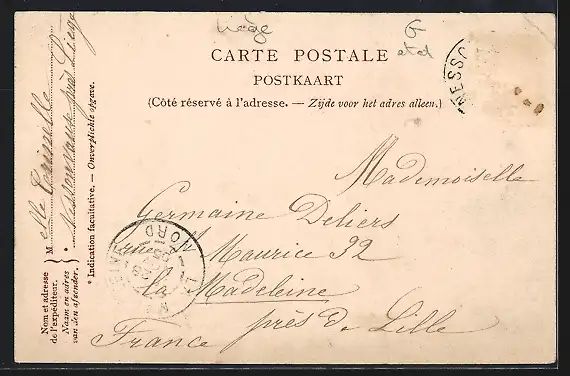 Liège
G
et d
CARTE POSTALE
POSTKAART
(Côté réservé à l'adresse. — Zijde voor het adres alleen.)
NESSO
Mademoiselle
Germaine Deliers
rue St Maurice 32
La Madeleine
près de Lille
France
NORD
Nom et adresse de l'expéditeur.
Naam en adres van den afzender.
M
elle
près Liège
* Indication facultative. — Onverplichte opgave.